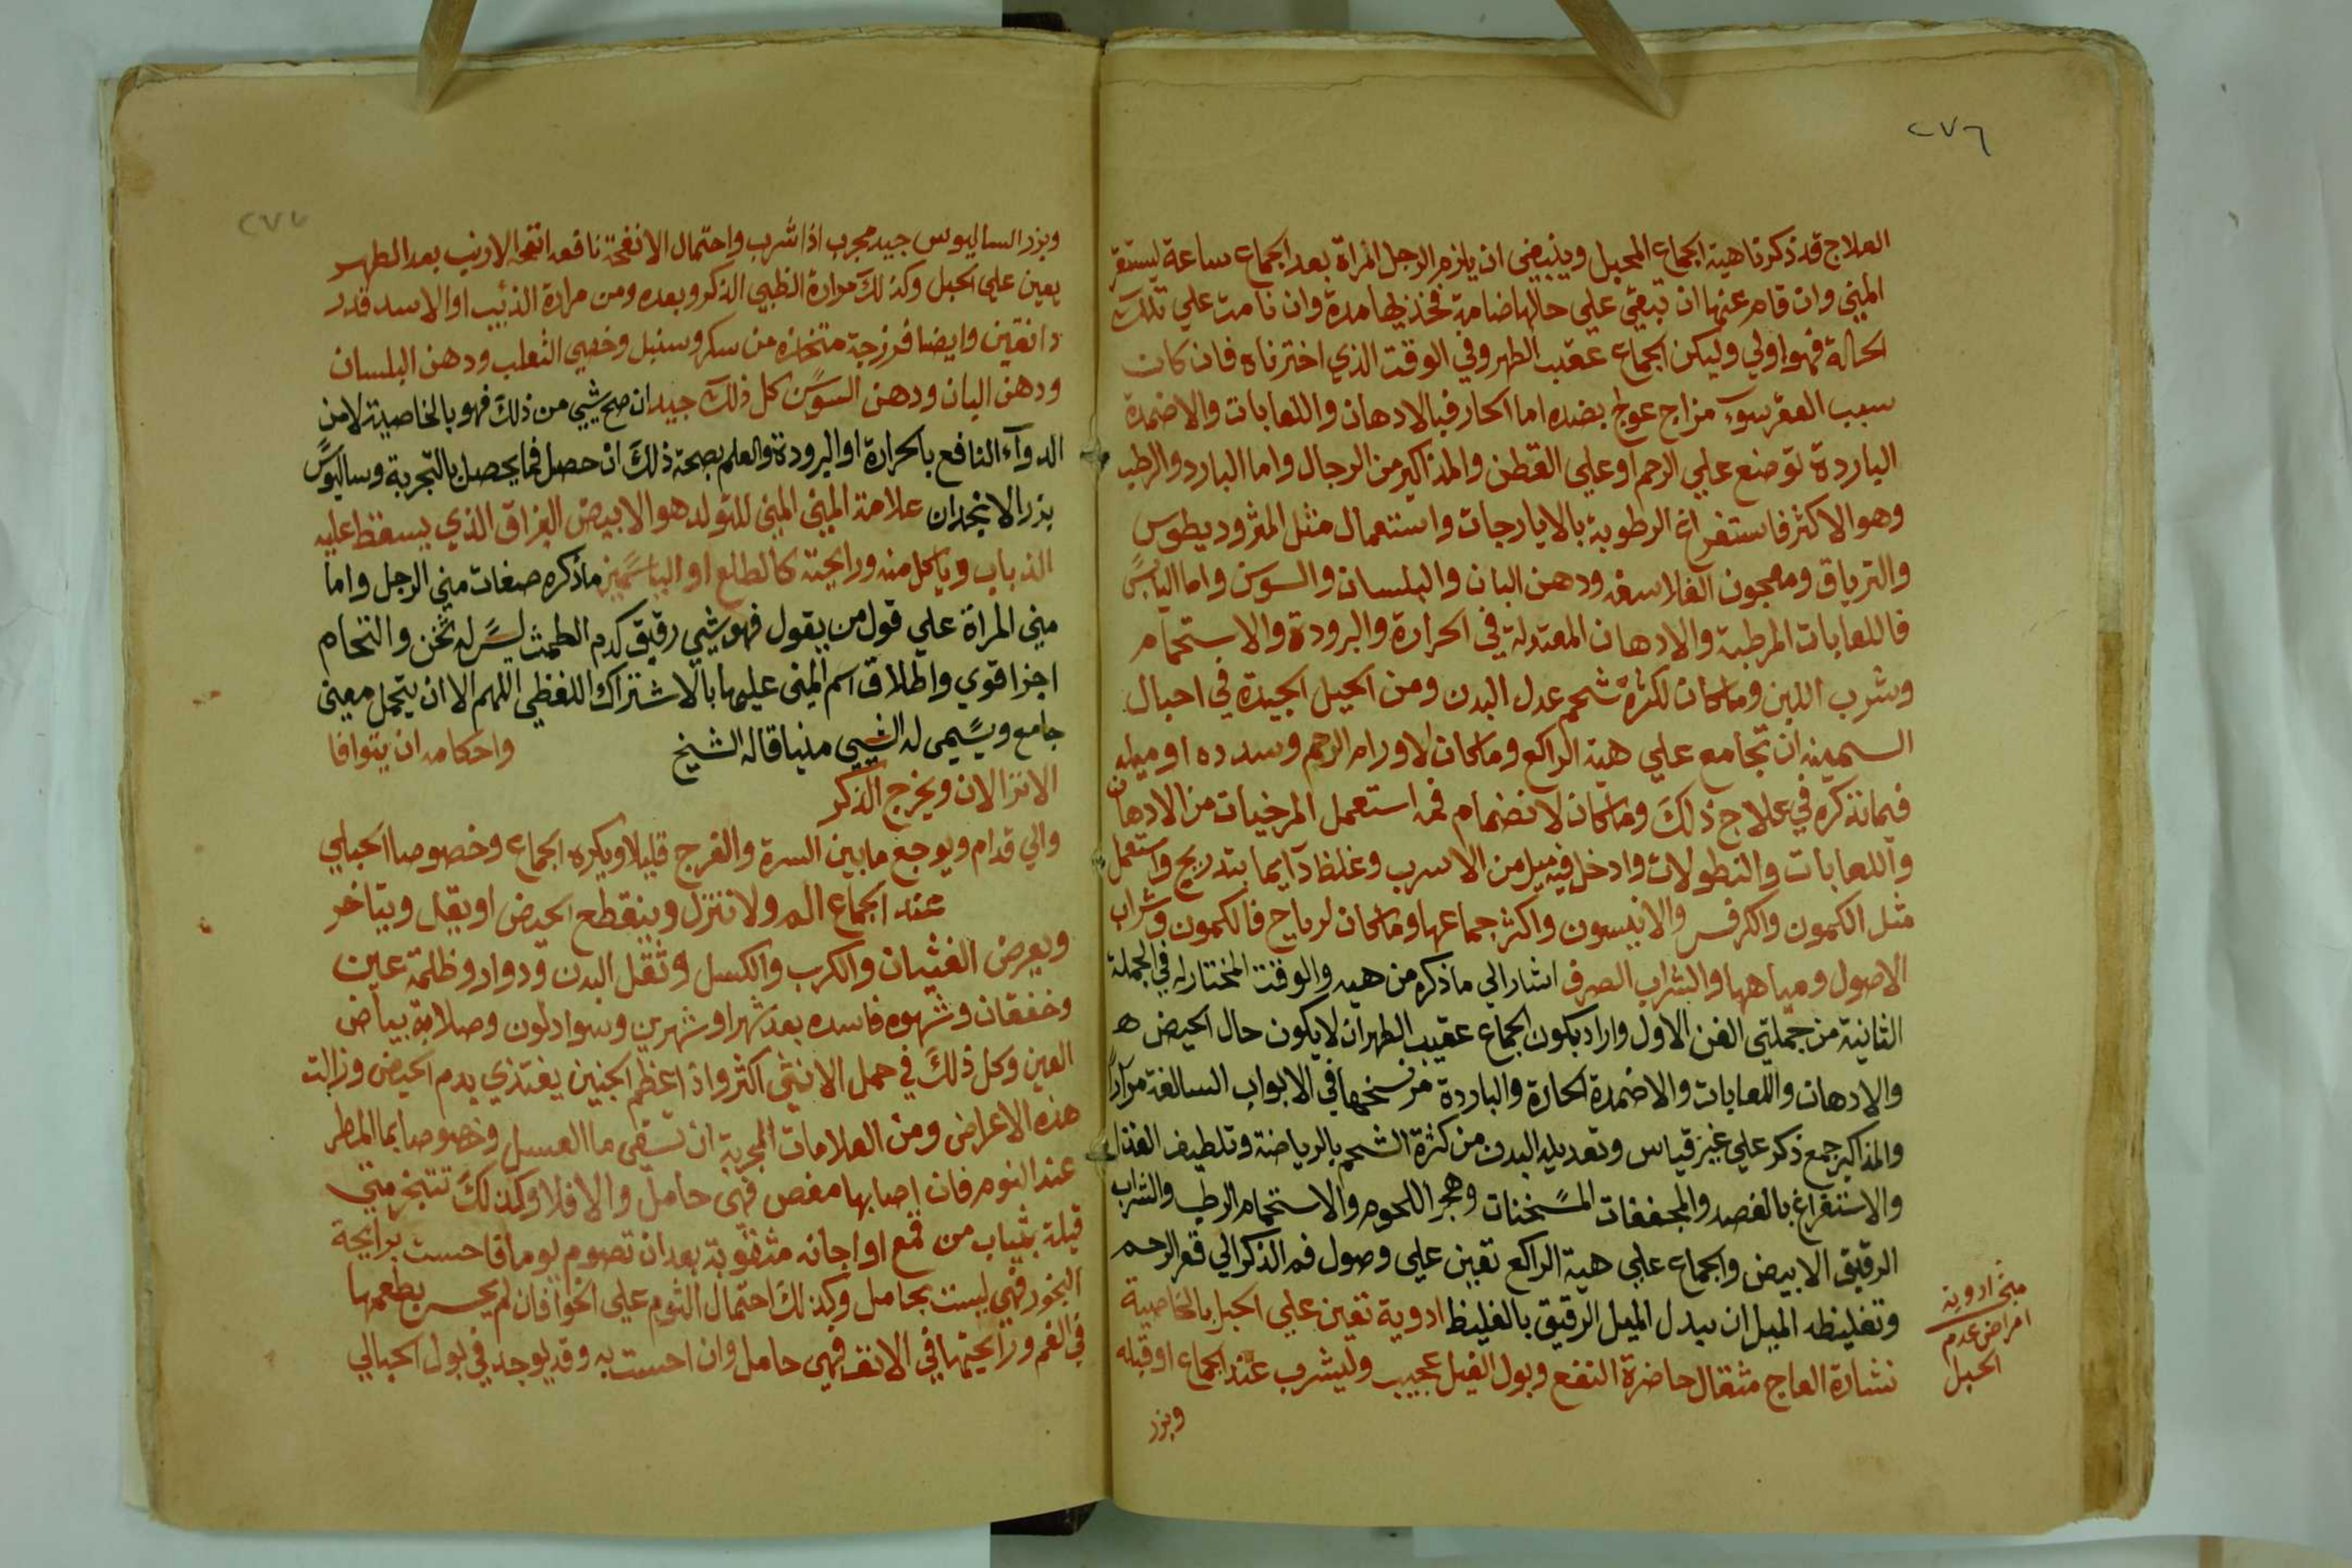 ٢٧٦
العلاج قد ذكرنا هية الجماع المحبل وينبغي ان يلزم الرجل المراة بعد الجماع ساعة ليستقر
المني وان قام عنها ان تبقي علي حالها ضامة فخذيها مدة وان نامت علي تلك
الحالة فهو اولي وليكن الجماع عقيب الطهر وفي الوقت الذي اخترناه فان كان
سبب العقر سوء مزاج عولج بضده اما الحار فبالادهان واللعابات والاضمدة
الباردة توضع علي الرحم او علي القطن والمذاكير من الرجال واما البارد والرطب
وهو الاكثر فاستفراغ الرطوبة بالايارجات واستعمال مثل المثروديطوس
والترياق ومعجون الفلاسفه ودهن البان والبلسان والسوسن واما اليابس
فاللعابات المرطبة والادهان المعتدلة في الحرارة والبرودة والاستحمام
وشرب اللبن وما كان لكثرة شحم عدل البدن ومن الحيل الجيدة في احبال
السمينه ان تجامع علي هية الراكع وما كان لاورام الرحم وسدده او ميله
فيما نذكره في علاج ذلك وما كان لانضمام فمه استعمل المرخيات من الادهان
واللعابات والنطولات وادخل فيه ميل من الاسرب وغلظ دآيما بتدريج واستعمل
مثل الكمون والكرفس والانيسون واكثر جماعها وما كان لرياح فالكمون وشراب
الاصول ومياهها والشراب الصرف اشار الي ما ذكره من هيه والوقت المختار له في الجملة
الثانية من جملتي الفن الاول واراد بكون الجماع عقيب الطهر ان لا يكون حال الحيض ه
والادهان واللعابات والاضمدة الحارة والباردة مر نسخها في الابواب السالفة مرارا
والمذاكير جمع ذكر علي غير قياس وتعديله البدن من كثرة الشحم بالرياضة وتلطيف الغذاء
والاستفراغ بالفصد والمجففات المسخنات وهجر اللحوم والاستحمام الرطب والشراب
الرقيق الابيض والجماع علي هية الراكع تعين علي وصول فم الذكر الي قعر الرحم
وتغليظه الميل ان يبدل الميل الرقيق بالغليظ ادوية تعين علي الحبل بالخاصية
نشارة العاج مثقال حاضرة النفع وبول الفيل عجيب وليشرب عند الجماع او قبله
وبزر
ادويه
امراض عدم
الحبل
٢٧٧
وبزر الساليوس جيد مجرب اذا شرب واحتمال الانفحة نافعه انفحة الارنب بعد الطهر
يعين علي الحبل وكذلك مرارة الظبي الذكر وبعده ومن مرارة الذئب او الاسد قدر
دانقين وايضا فرزجة متخذه من سكر وسنبل وخصي الثعلب ودهن البلسان
ودهن البان ودهن السوسن كل ذلك جيد ان صح شيي من ذلك فهو بالخاصية لا من
الدوآء النافع بالحرارة او البرودة والعلم بصحة ذلك ان حصل فما يحصل بالتجربة وساليوس
بزر الانجدان علامة المني المني للتولد هو الابيض البراق الذي يسقط عليه
الذباب وياكل منه ورايحته كالطلع او الياسمين ما ذكره صفات مني الرجل واما
مني المراة علي قول من يقول فهو شيي رقيق كدم الطمث ليس له ثخن والتحام
اجزا قوي واطلاق اسم المني عليهما بالاشتراك اللفظي اللهم الا ان يتحمل معني
جامع ويسمي له الشيي منيا قاله الشيخ واحكامه ان يتوافا
الانزالان ويخرج الذكر
والي قدام ويوجع ما بين السرة والفرج قليلا ويكره الجماع وخصوصا الحبالي
عند الجماع الم ولا تنزل وينقطع الحيض او يقل ويتاخر
ويعرض الغثيان والكرب والكسل وثقل البدن ودوار وظلمة عين
وخفقان وشهوه فاسده بعد شهر او شهرين وسواد لون وصلابة بياض
العين وكل ذلك في حمل الانثي اكثر واذا عظم الجنين يغتذي بدم الحيض وزالت
هذه الاعراض ومن العلامات المجربة ان تسقي ما العسل وخصوصا بما المطر
عند النوم فان اصابها مغص فهي حامل والا فلا وكذلك تتبخر متي
قيلة بثياب من قمع او اجانه مثقوبة بعد ان تصوم يوما فاحست برايحة
البخور فهي ليست بحامل وكذلك احتمال الثوم علي الخوا فان لم يحس بطعمها
في الفم ورايحتها في الانف فهي حامل وان احست به وقد يوجد في بول الحبالي